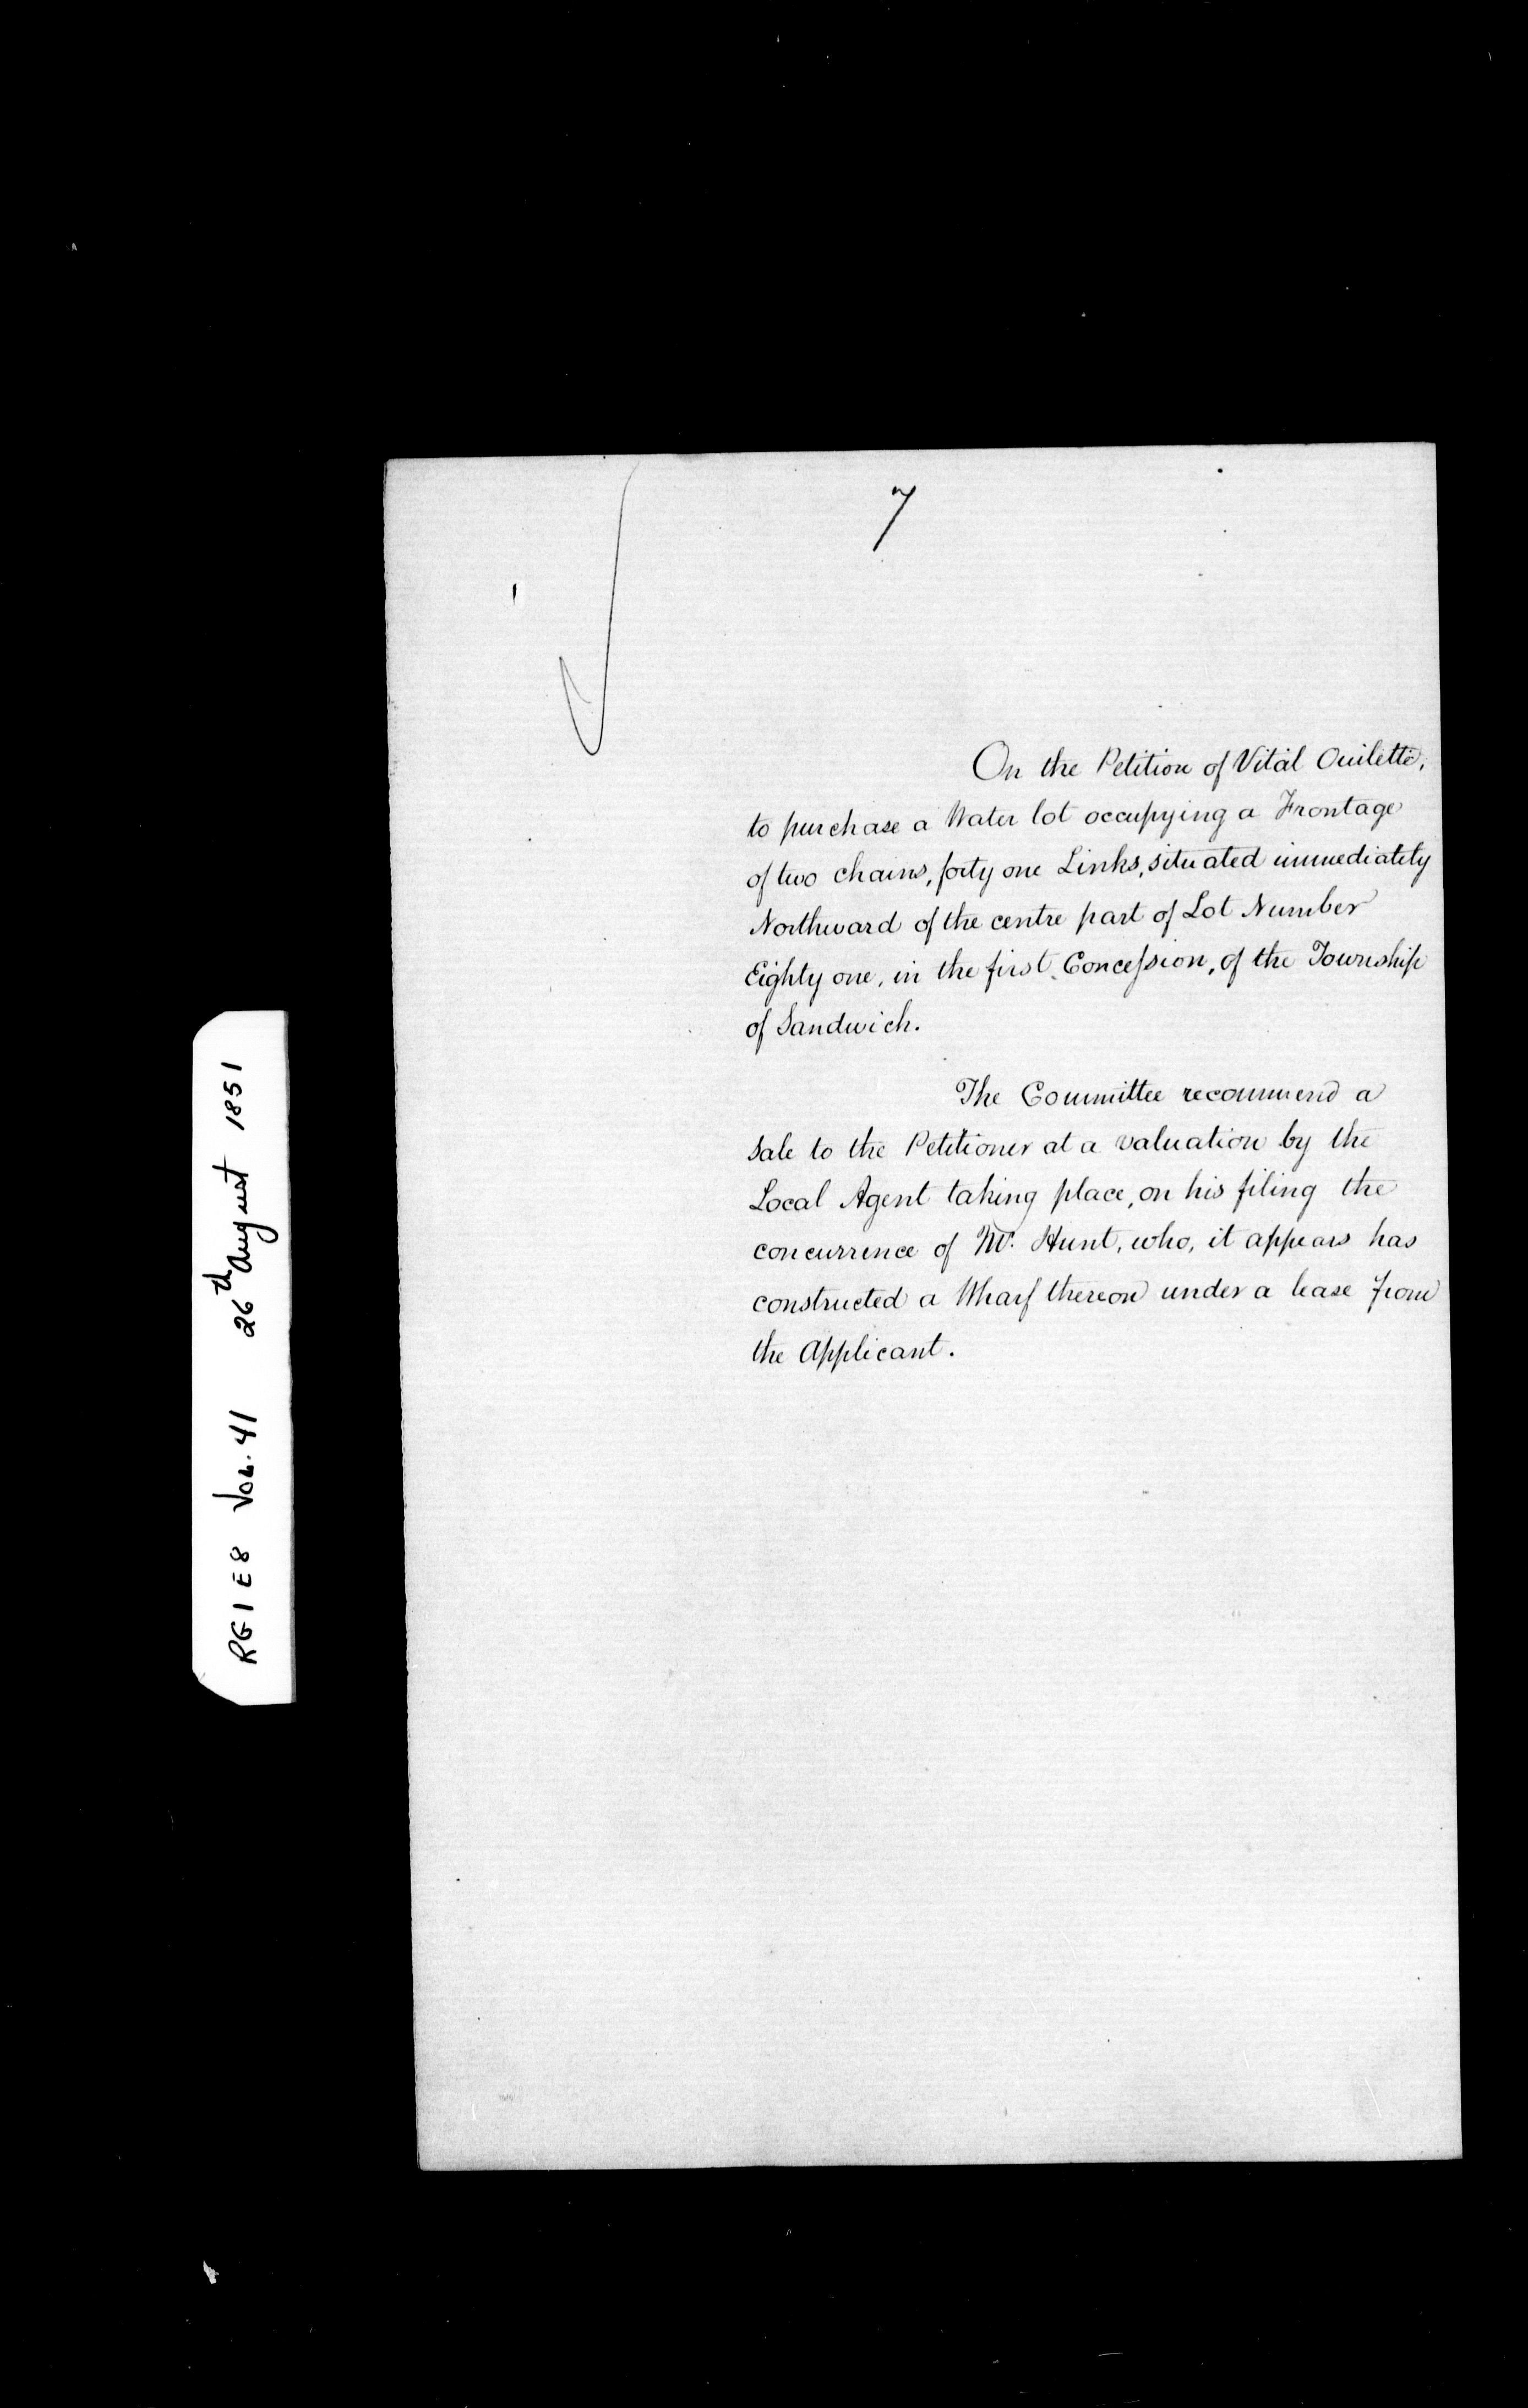 7
On the Petition of Vital Ouilette,
to purchase a Water lot occupying a Frontage
of two chains, forty one Links, situated immediately
Northward of the centre part of Lot Number
Eighty one, in the first Concession, of the Township
of Sandwich.
The Committee recommend a
sale to the Petitioner at a valuation by the
Local Agent taking place, on his filing the
concurrence of Mr. Hunt, who, it appears has
constructed a Wharf thereon under a lease from
the Applicant.
RG1E8 VOL. 41 26th August 1851